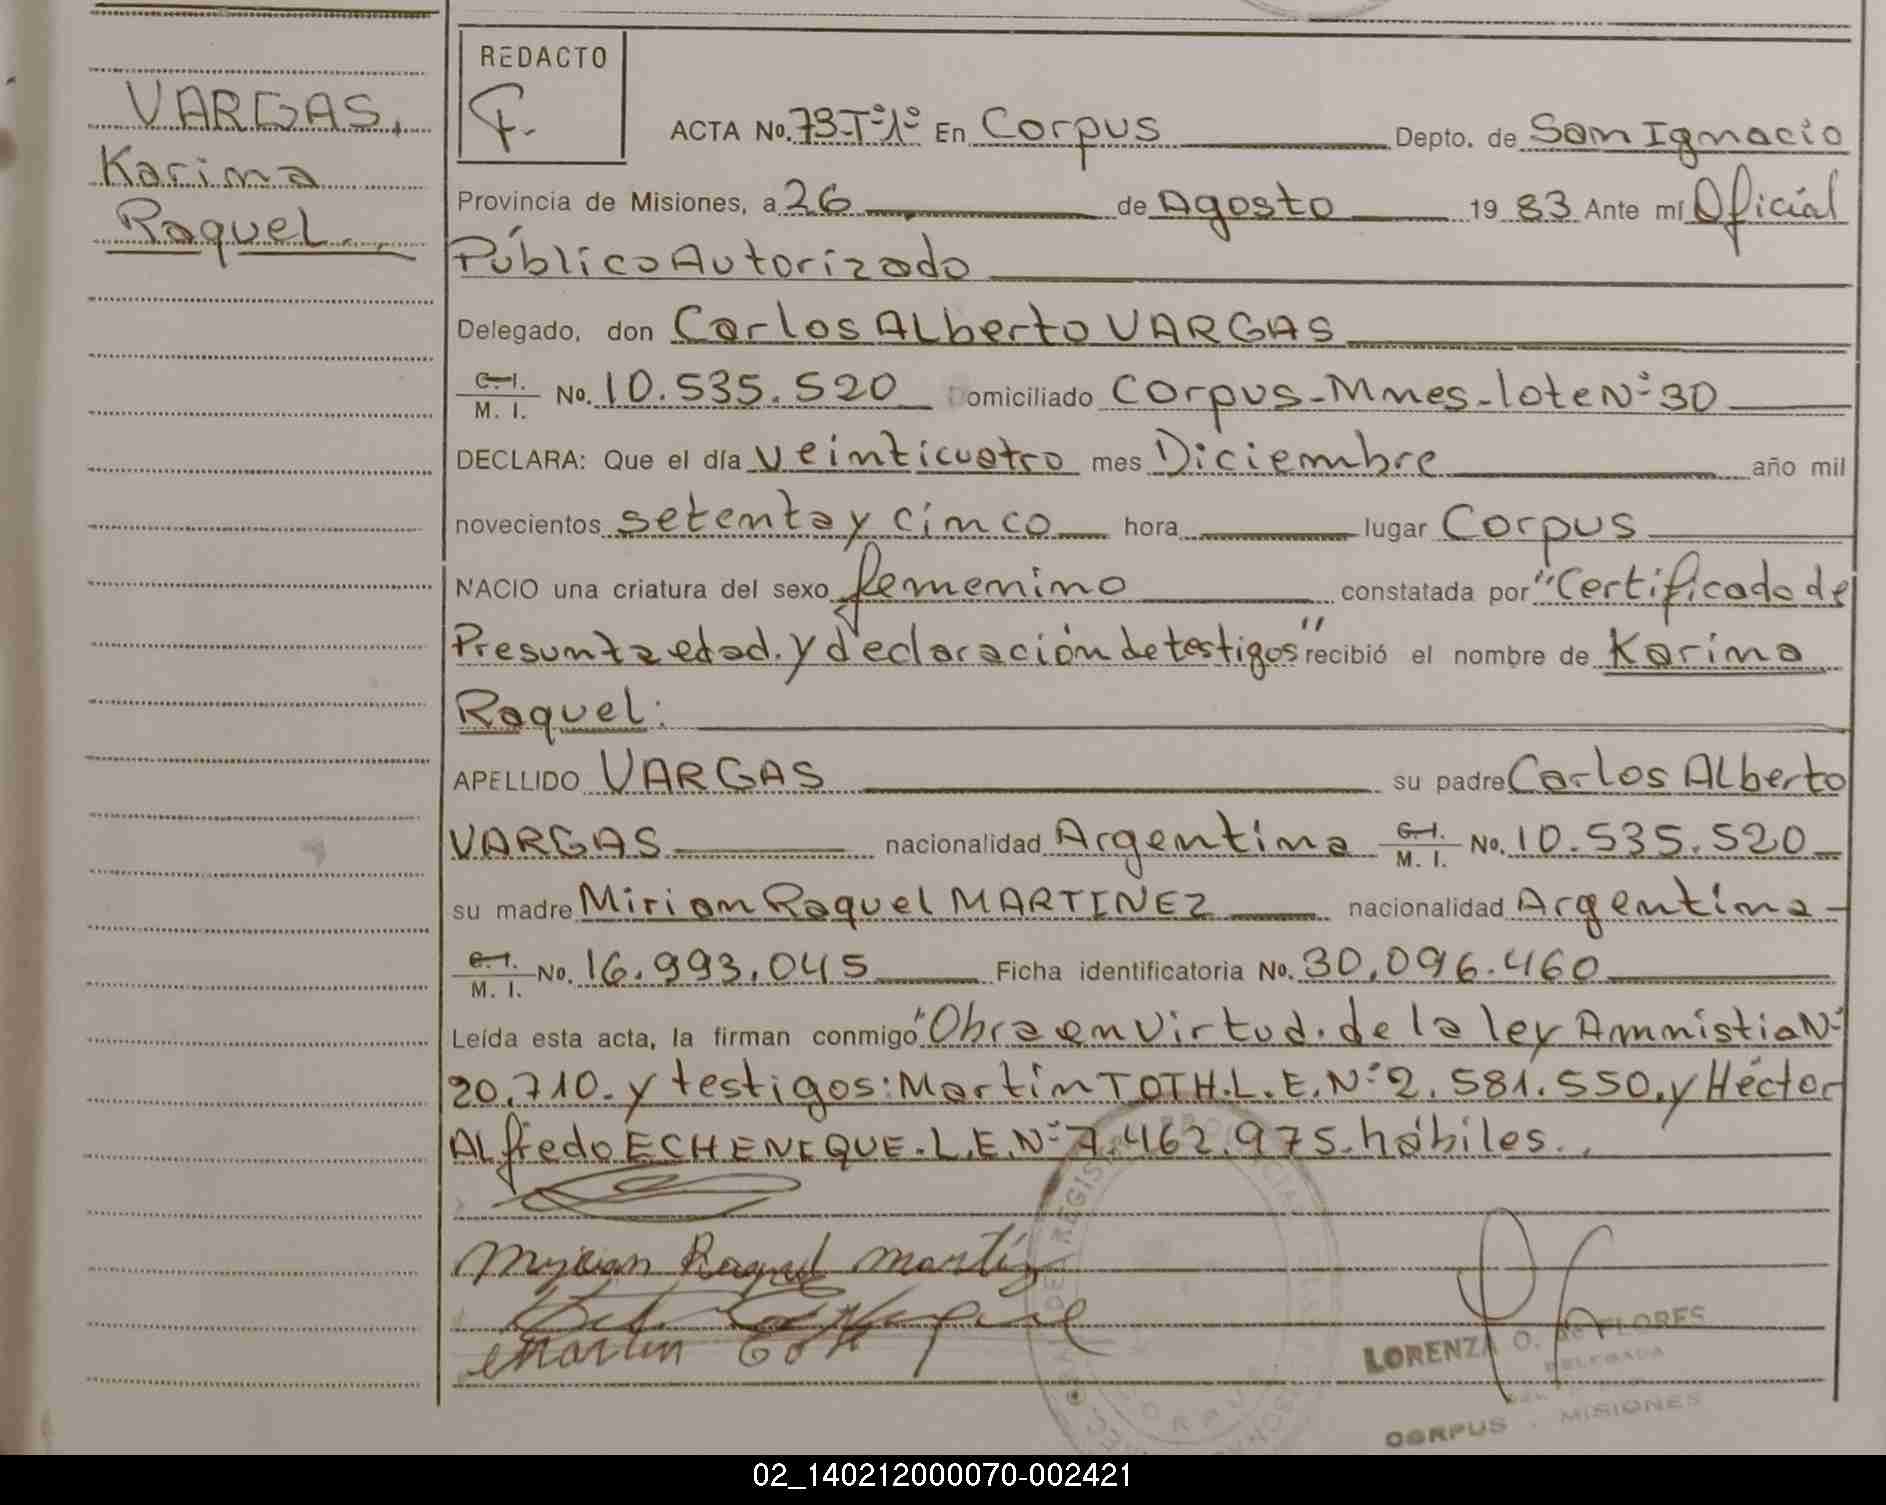 VARGAS,
Karina
Raquel.
REDACTO
F.
ACTA No. 73-Tº1º En Corpus Depto. de San Ignacio
Provincia de Misiones, a 26 de Agosto 19 83 Ante mí Oficial
Público Autorizado
Delegado, don Carlos ALberto VARGAS
C. I.
M. I. No. 10.535.520 Domiciliado Corpus-Mnes-lote Nº 30
DECLARA: Que el día veinticuatro mes Diciembre año mil
novecientos setenta y cinco hora lugar Corpus
NACIO una criatura del sexo femenino constatada por "Certificado de
Presunta edad. y declaración de testigos" recibió el nombre de Karina
Raquel:
APELLIDO VARGAS su padre Carlos ALberto
VARGAS nacionalidad Argentina C. I.
M. I. No. 10.535.520
su madre Miriam Raquel MARTINEZ nacionalidad Argentina
C. I.
M. I. No. 16.993.045 Ficha identificatoria No. 30.096.460
Leída esta acta, la firman conmigo "Obra en virtud. de la ley Amnistia Nº
20.710. y testigos: Martín TOTH. L. E. Nº 2.581.550. y Héctor
ALfredo ECHENEQUE. L.E. Nº 7.462.975. hábiles.
Myrian Raquel Martíz
Martin Toth
LORENZA O. de FLORES
DELEGADA
CORPUS - MISIONES
CORPUS
02_140212000070-002421